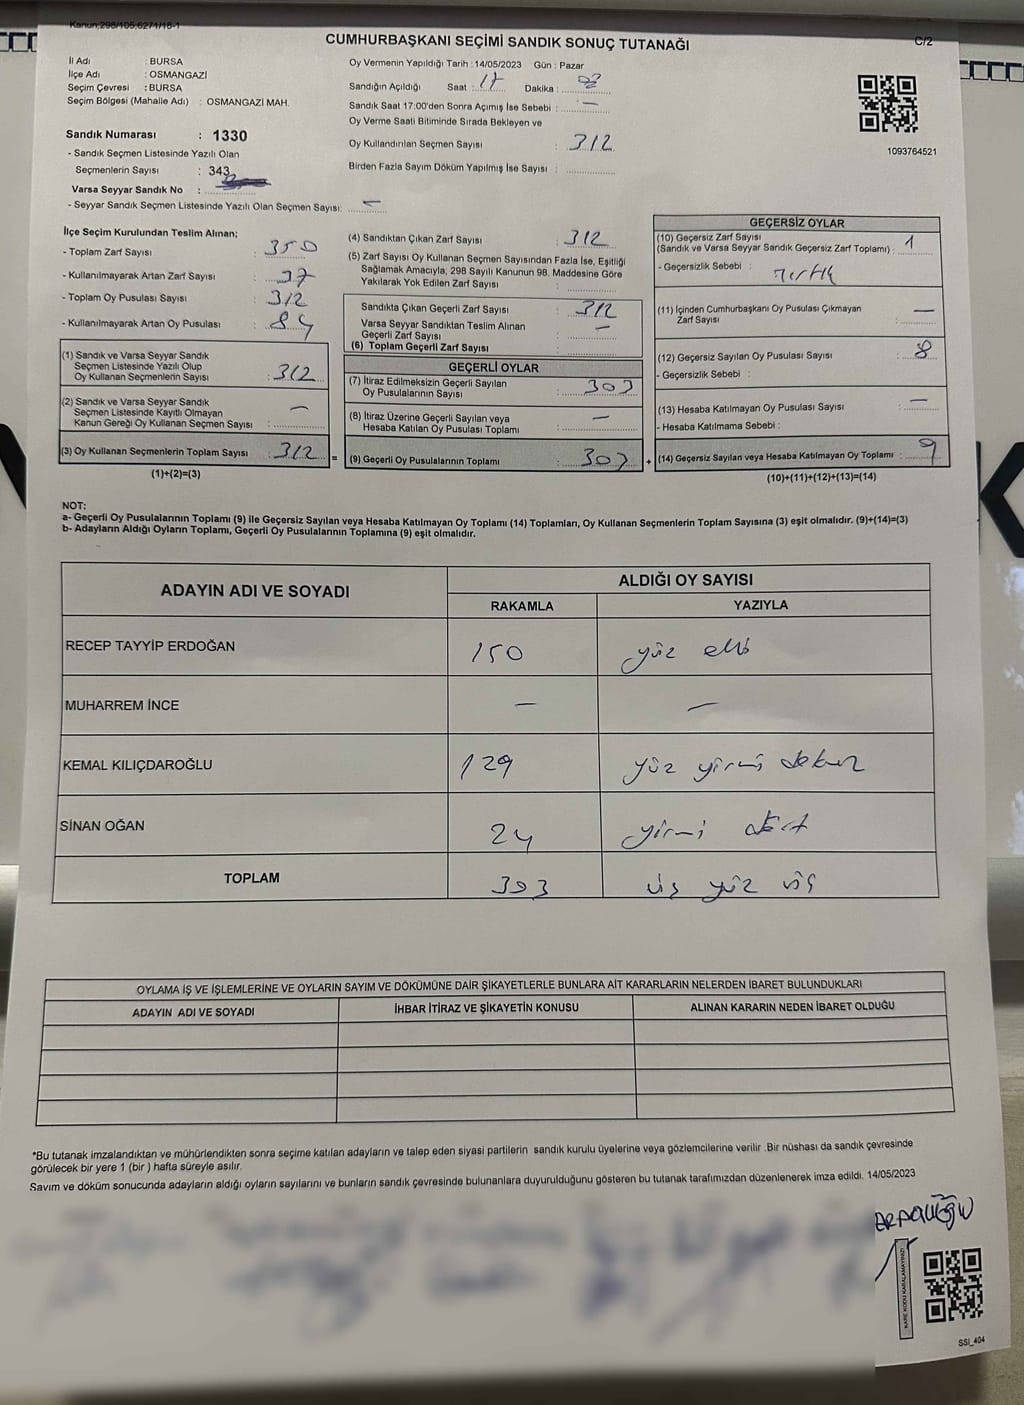 Kanun:298/105,6271/18-1
CUMHURBAŞKANI SEÇİMİ SANDIK SONUÇ TUTANAĞI
C/2
İl Adı : BURSA
İlçe Adı : OSMANGAZİ
Seçim Çevresi : BURSA
Seçim Bölgesi (Mahalle Adı) : OSMANGAZİ MAH.
Sandık Numarası : 1330
- Sandık Seçmen Listesinde Yazılı Olan
Seçmenlerin Sayısı : 343
Varsa Seyyar Sandık No :
- Seyyar Sandık Seçmen Listesinde Yazılı Olan Seçmen Sayısı: —
Oy Vermenin Yapıldığı Tarih : 14/05/2023 Gün : Pazar
Sandığın Açıldığı Saat : 17 Dakika :
Sandık Saat 17:00'den Sonra Açımış İse Sebebi : —
Oy Verme Saati Bitiminde Sırada Bekleyen ve
Oy Kullandırılan Seçmen Sayısı : 312
Birden Fazla Sayım Döküm Yapılmış İse Sayısı :
1093764521
İlçe Seçim Kurulundan Teslim Alınan;
- Toplam Zarf Sayısı : 350
- Kullanılmayarak Artan Zarf Sayısı : 37
- Toplam Oy Pusulası Sayısı : 312
- Kullanılmayarak Artan Oy Pusulası : 84
(1) Sandık ve Varsa Seyyar Sandık
Seçmen Listesinde Yazılı Olup
Oy Kullanan Seçmenlerin Sayısı : 312
(2) Sandık ve Varsa Seyyar Sandık
Seçmen Listesinde Kayıtlı Olmayan
Kanun Gereği Oy Kullanan Seçmen Sayısı : —
(3) Oy Kullanan Seçmenlerin Toplam Sayısı : 312
(1)+(2)=(3)
(4) Sandıktan Çıkan Zarf Sayısı : 312
(5) Zarf Sayısı Oy Kullanan Seçmen Sayısından Fazla İse, Eşitliği
Sağlamak Amacıyla, 298 Sayılı Kanunun 98. Maddesine Göre
Yakılarak Yok Edilen Zarf Sayısı :
Sandıkta Çıkan Geçerli Zarf Sayısı : 312
Varsa Seyyar Sandıktan Teslim Alınan
Geçerli Zarf Sayısı : —
(6) Toplam Geçerli Zarf Sayısı :
GEÇERLİ OYLAR
(7) İtiraz Edilmeksizin Geçerli Sayılan
Oy Pusulalarının Sayısı : 303
(8) İtiraz Üzerine Geçerli Sayılan veya
Hesaba Katılan Oy Pusulası Toplamı : —
= (9) Geçerli Oy Pusulalarının Toplamı : 303
GEÇERSİZ OYLAR
(10) Geçersiz Zarf Sayısı
(Sandık ve Varsa Seyyar Sandık Geçersiz Zarf Toplamı) : 1
- Geçersizlik Sebebi : Yırtık
(11) İçinden Cumhurbaşkanı Oy Pusulası Çıkmayan
Zarf Sayısı : —
(12) Geçersiz Sayılan Oy Pusulası Sayısı : 8
- Geçersizlik Sebebi :
(13) Hesaba Katılmayan Oy Pusulası Sayısı : —
- Hesaba Katılmama Sebebi :
+ (14) Geçersiz Sayılan veya Hesaba Katılmayan Oy Toplamı : 9
(10)+(11)+(12)+(13)=(14)
NOT:
a- Geçerli Oy Pusulalarının Toplamı (9) ile Geçersiz Sayılan veya Hesaba Katılmayan Oy Toplamı (14) Toplamları, Oy Kullanan Seçmenlerin Toplam Sayısına (3) eşit olmalıdır. (9)+(14)=(3)
b- Adayların Aldığı Oyların Toplamı, Geçerli Oy Pusulalarının Toplamına (9) eşit olmalıdır.
ADAYIN ADI VE SOYADI ALDIĞI OY SAYISI
RAKAMLA YAZIYLA
RECEP TAYYİP ERDOĞAN 150 yüz elli
MUHARREM İNCE — —
KEMAL KILIÇDAROĞLU 129 yüz yirmi dokuz
SİNAN OĞAN 24 yirmi dört
TOPLAM 303 üç yüz üç
OYLAMA İŞ VE İŞLEMLERİNE VE OYLARIN SAYIM VE DÖKÜMÜNE DAİR ŞİKAYETLERLE BUNLARA AİT KARARLARIN NELERDEN İBARET BULUNDUKLARI
ADAYIN ADI VE SOYADI İHBAR İTİRAZ VE ŞİKAYETİN KONUSU ALINAN KARARIN NEDEN İBARET OLDUĞU
*Bu tutanak imzalandıktan ve mühürlendikten sonra seçime katılan adayların ve talep eden siyasi partilerin sandık kurulu üyelerine veya gözlemcilerine verilir .Bir nüshası da sandık çevresinde
görülecek bir yere 1 (bir ) hafta süreyle asılır.
Sayım ve döküm sonucunda adayların aldığı oyların sayılarını ve bunların sandık çevresinde bulunanlara duyurulduğunu gösteren bu tutanak tarafımızdan düzenlenerek imza edildi. 14/05/2023
KARE KODU KARALAMAYINIZ!
SSİ_404